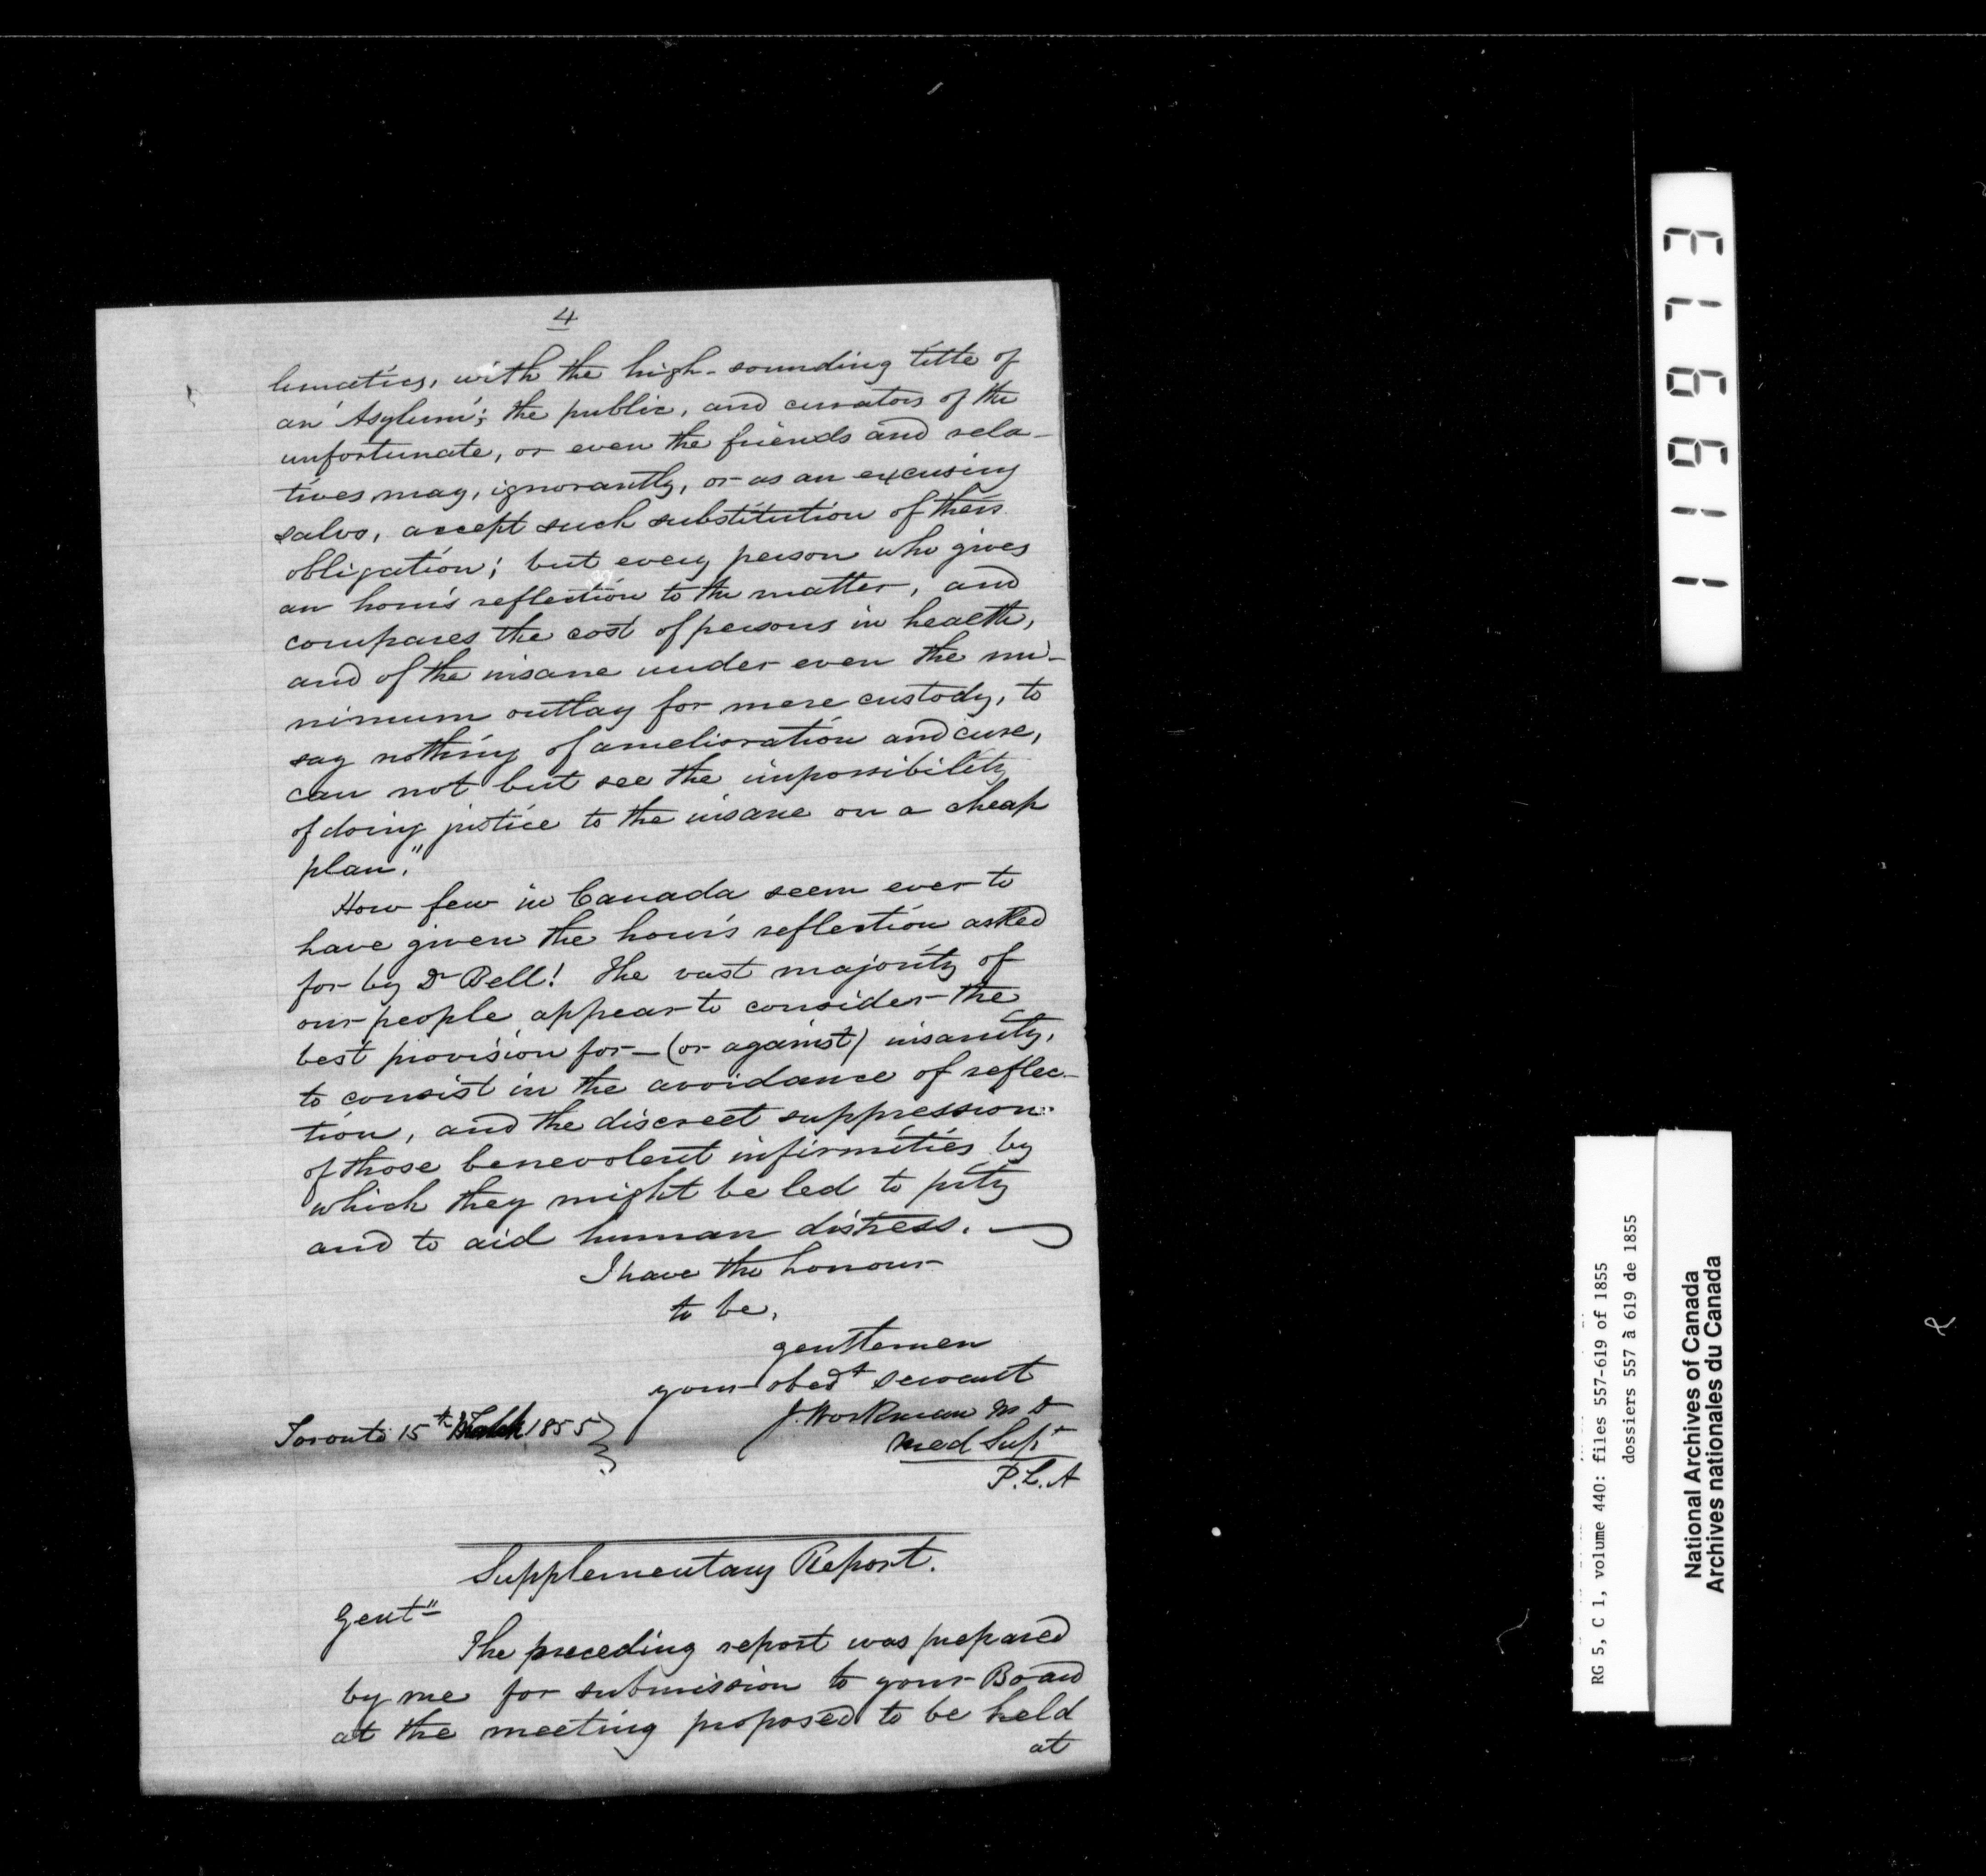 4
lunatics, with the high-sounding title of
an 'Asylum'; the public, and curators of the
unfortunate, or even the friends and rela-
tives may, ignorantly, or as an excusing
salvo, accept such substitution of their
obligation; but every person who gives
an hour's reflection to the matter, and
compares the cost of persons in health,
and of the insane under even the mi-
nimum outlay for mere custody, to
say nothing of amelioration and cure,
can not but see the impossibility
of doing justice to the insane on a cheap
plan."
How few in Canada seem ever to
have given the hour's reflection asked
for by Dr Bell! The vast majority of
our people appear to consider the
best provision for—(or against) insanity,
to consist in the avoidance of reflec-
tion, and the discreet suppression
of those benevolent infirmities by
which they might be led to pity
and to aid human distress.
I have the honour
to be,
gentlemen
your obedt servant
J. Workman M D
Med Supt
P. L. A
Toronto 15th 1855
Supplementary Report.
Gentn
The preceding report was prepared
by me for submission to your Board
at the meeting proposed to be held
at
119673
RG 5, C 1, volume 440: files 557-619 of 1855
dossiers 557 à 619 de 1855
National Archives of Canada
Archives nationales du Canada